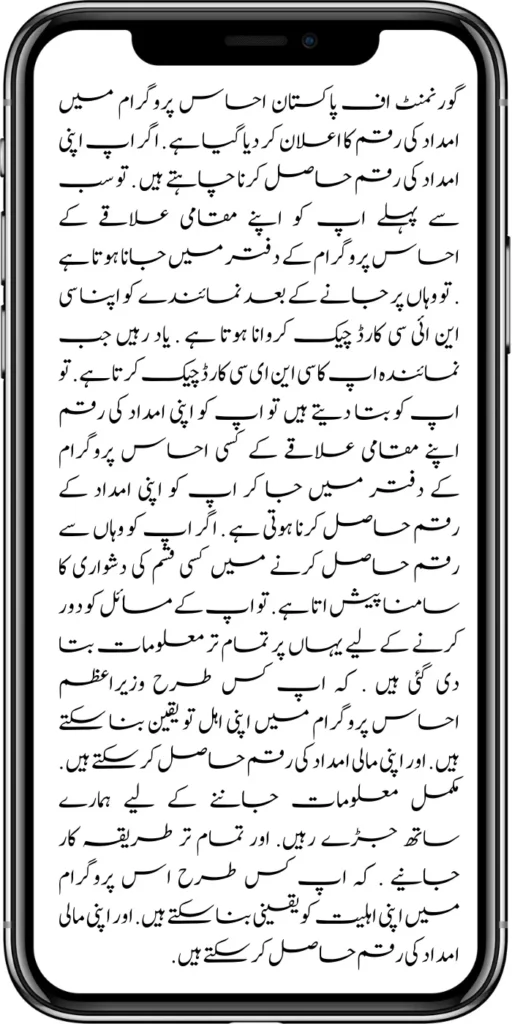 گورنمنٹ اف پاکستان احساس پروگرام میں
امداد کی رقم کا اعلان کر دیا گیا ہے . اگر اپ اپنی
امداد کی رقم حاصل کرنا چاہتے ہیں . تو سب
سے پہلے اپ کو اپنے مقامی علاقے کے
احساس پروگرام کے دفتر میں جانا ہوتا ہے
. تو وہاں پر جانے کے بعد نمائندے کو اپنا سی
این ائی سی کارڈ چیک کروانا ہوتا ہے . یاد رہیں جب
نمائندہ اپ کا سی این ای سی کارڈ چیک کرتا ہے. تو
اپ کو بتا دیتے ہیں تو اپ کو اپنی امداد کی رقم
اپنے مقامی علاقے کے کسی احساس پروگرام
کے دفتر میں جا کر اپ کو اپنی امداد کے
رقم حاصل کرنا ہوتی ہے . اگر اپ کو وہاں سے
رقم حاصل کرنے میں کسی قسم کی دشواری کا
سامنا پیش اتا ہے . تو اپ کے مسائل کو دور
کرنے کے لیے یہاں پر تمام تر معلومات بتا
دی گئی ہیں . کہ اپ کس طرح وزیراعظم
احساس پروگرام میں اپنی اہل تو یقین بنا سکتے
ہیں. اور اپنی مالی امداد کی رقم حاصل کر سکتے ہیں.
مکمل معلومات جاننے کے لیے ہمارے
ساتھ جڑے رہیں. اور تمام تر طریقہ کار
جانیے . کہ اپ کس طرح اس پروگرام
میں اپنی اہلیت کو یقینی بنا سکتے ہیں. اور اپنی مالی
امداد کی رقم حاصل کر سکتے ہیں.